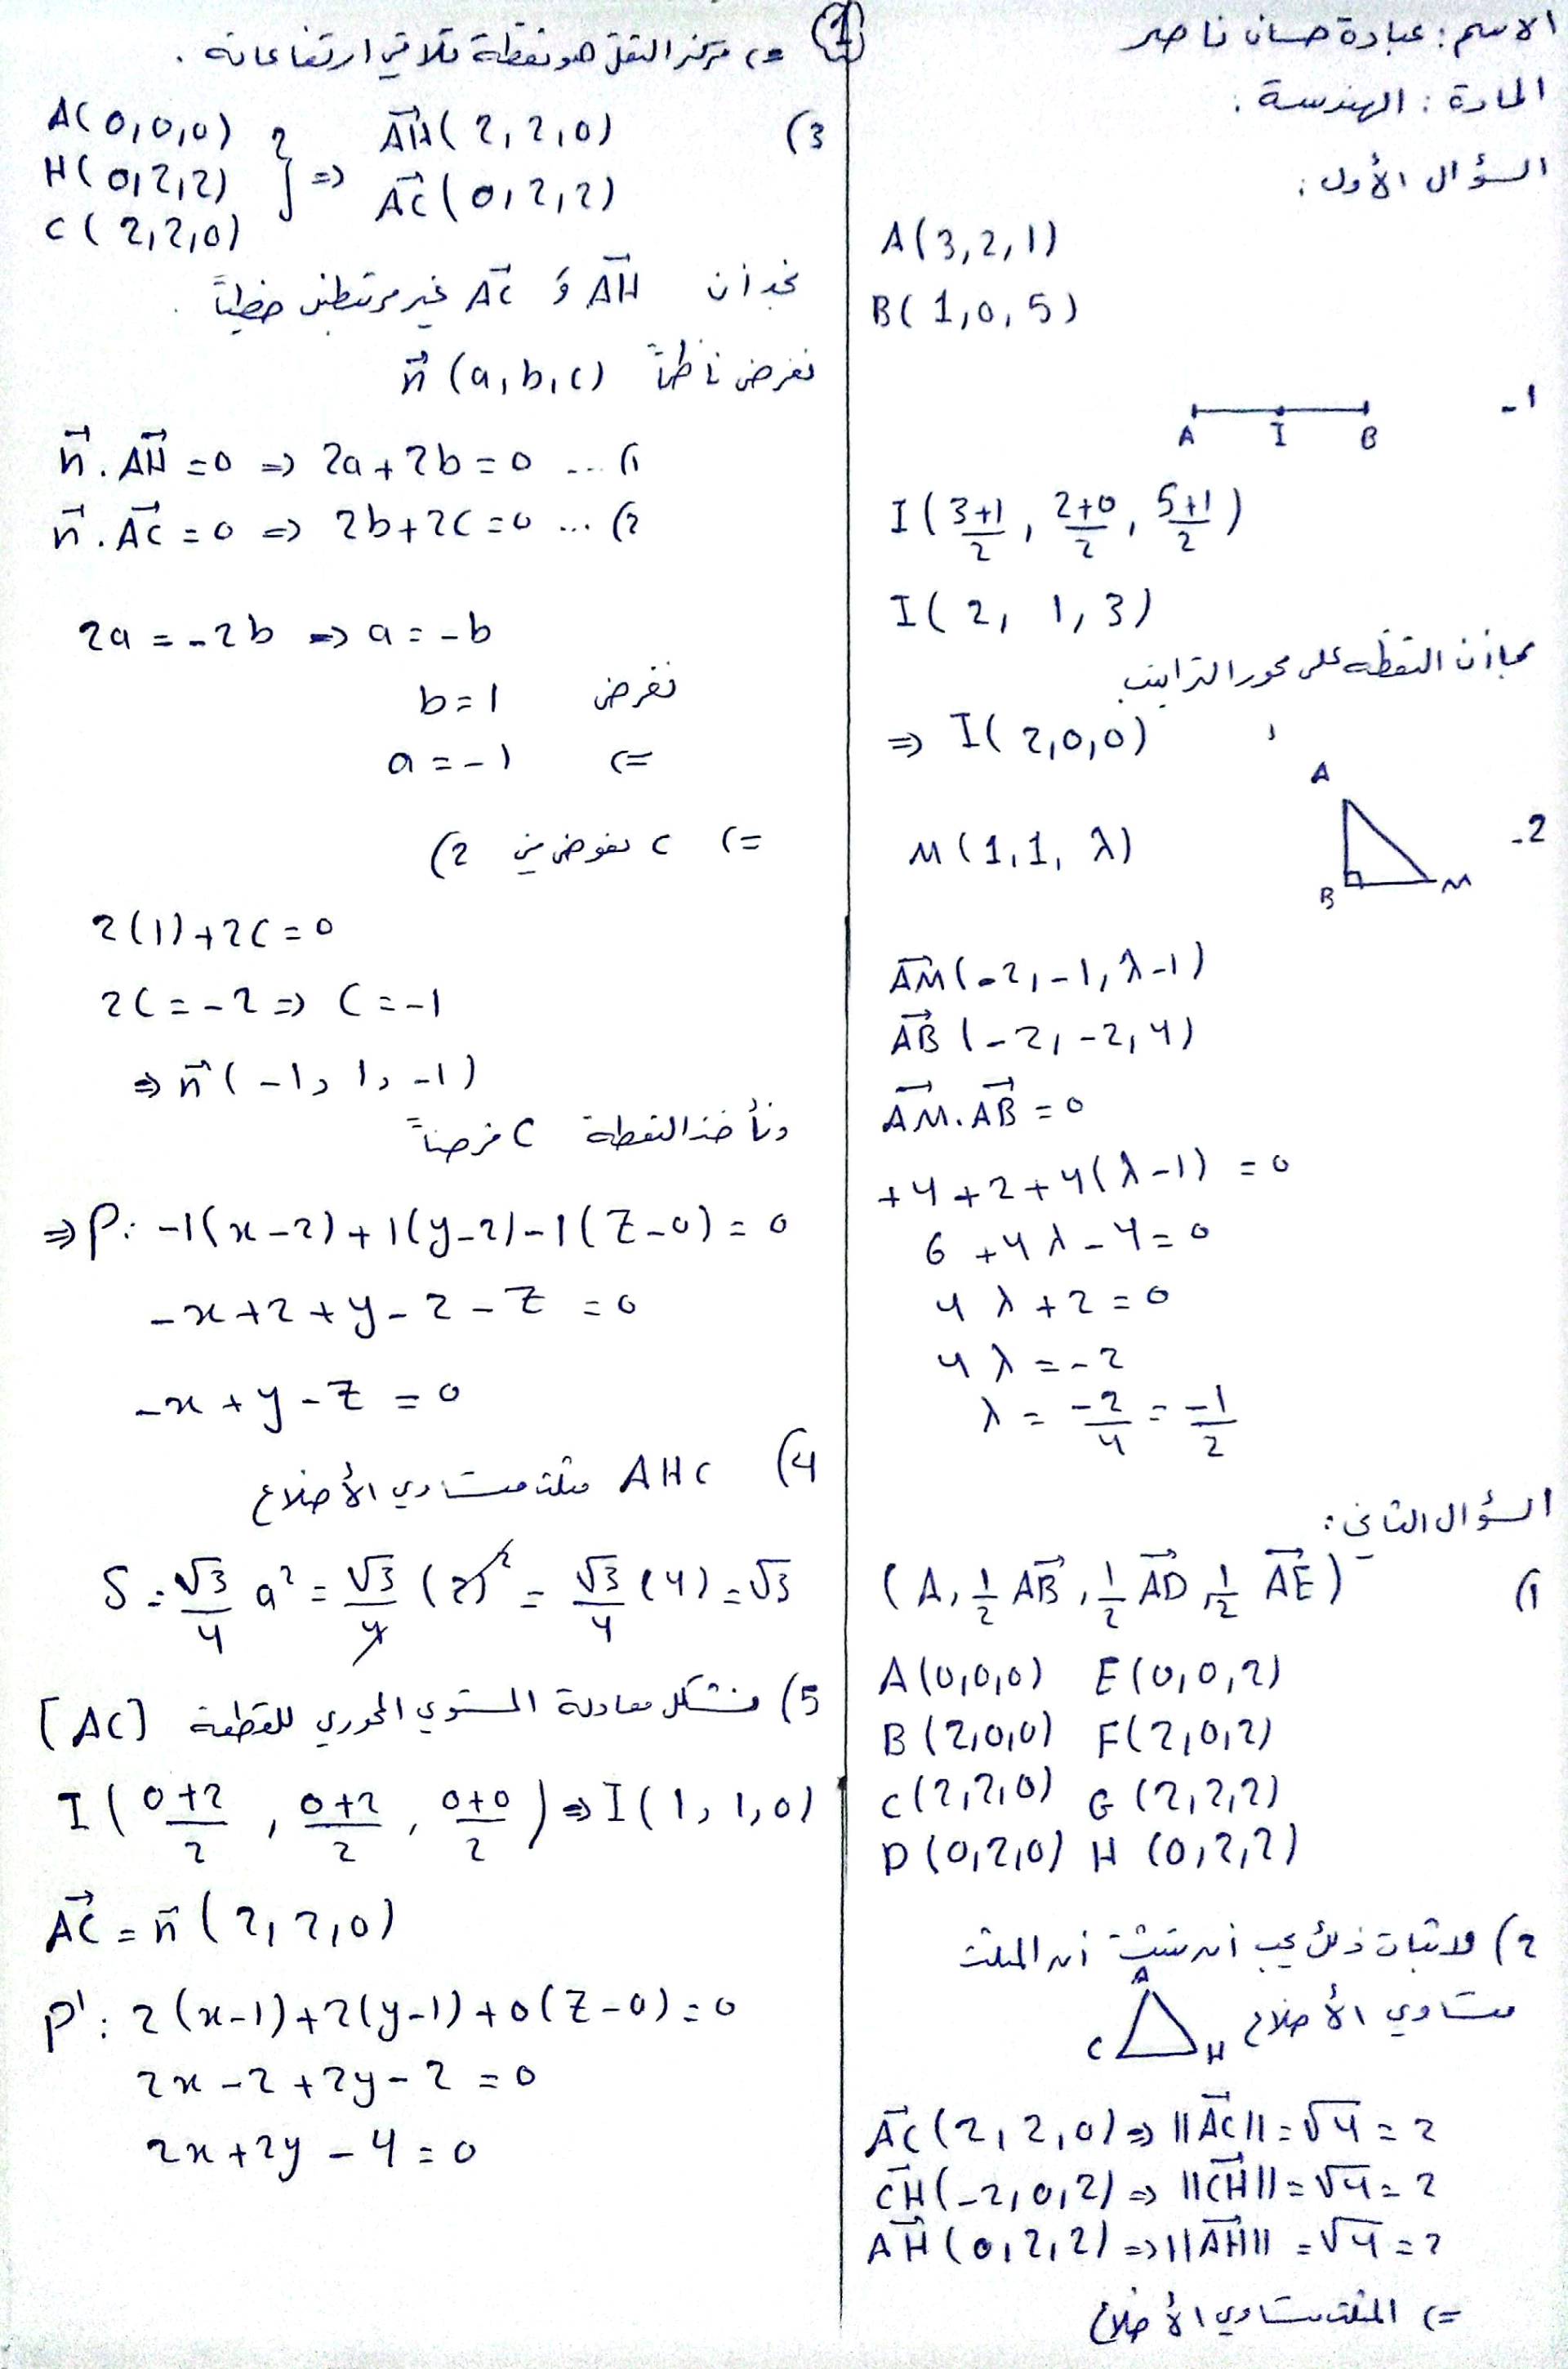 الاسم: عبادة حسان ناصر
المادة: الهندسة.
السؤال الأول:
A(3,2,1)
B(1,0,5)
1-
A I B
I(3+1/2, 2+0/2, 5+1/2)
I(2, 1, 3)
بما أن النقطة على محور التراتيب
⇒ I(2,0,0)
2-
A
B M
M(1,1, λ)
AM(-2,-1, λ-1)
AB(-2,-2,4)
AM.AB = 0
+4+2+4(λ-1) = 0
6+4λ-4=0
4λ+2=0
4λ=-2
λ = -2/4 = -1/2
السؤال الثاني:
1) (A, 1/2 AB, 1/2 AD, 1/2 AE)
A(0,0,0) E(0,0,2)
B(2,0,0) F(2,0,2)
C(2,2,0) G(2,2,2)
D(0,2,0) H(0,2,2)
2) لاثبات ذلك يجب أن نثبت أن المثلث
متساوي الأضلاع
A
C H
AC(2,2,0) ⇒ ||AC|| = √4 = 2
CH(-2,0,2) ⇒ ||CH|| = √4 = 2
AH(0,2,2) ⇒ ||AH|| = √4 = 2
⇐ المثلث متساوي الأضلاع
1
مركز الثقل هو نقطة تلاقي ارتفاعاته.
3)
A(0,0,0)
H(0,2,2)
C(2,2,0)
} ⇒ AH(2,2,0)
AC(0,2,2)
نجد أن AH و AC غير مرتبطين خطياً.
نفرض ناظماً n(a,b,c)
n.AH=0 ⇒ 2a+2b=0 ... 1)
n.AC=0 ⇒ 2b+2c=0 ... 2)
2a=-2b ⇒ a=-b
نفرض b=1
⇐ a=-1
⇐ نعوض في 2)
2(1)+2c=0
2c=-2 ⇒ c=-1
⇒ n(-1, 1, -1)
ونأخذ النقطة C فرضاً
⇒ P: -1(x-2)+1(y-2)-1(z-0)=0
-x+2+y-2-z=0
-x+y-z=0
4) AHC مثلث متساوي الأضلاع
S = √3/4 a² = √3/4 (2)² = √3/4 (4) = √3
5) نشكل معادلة المستوي المحوري للقطعة [AC]
I(0+2/2, 0+2/2, 0+0/2) ⇒ I(1,1,0)
AC = n(2,2,0)
P': 2(x-1)+2(y-1)+0(z-0)=0
2x-2+2y-2=0
2x+2y-4=0